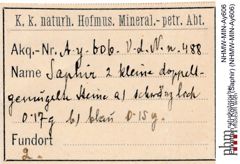 K. k. naturh. Hofmus. Mineral.-petr. Abt.
Akq.-Nr. A.y. 606. V.d.N.n. 488
Name Saphir 2 kleine doppelt
gemugelt Steine a)
0.17g b) blau 0.15g.
Fundort
2.
NHMW-MIN-Ay606
(Saphir) (NHMW-MIN-Ay606)
nhm